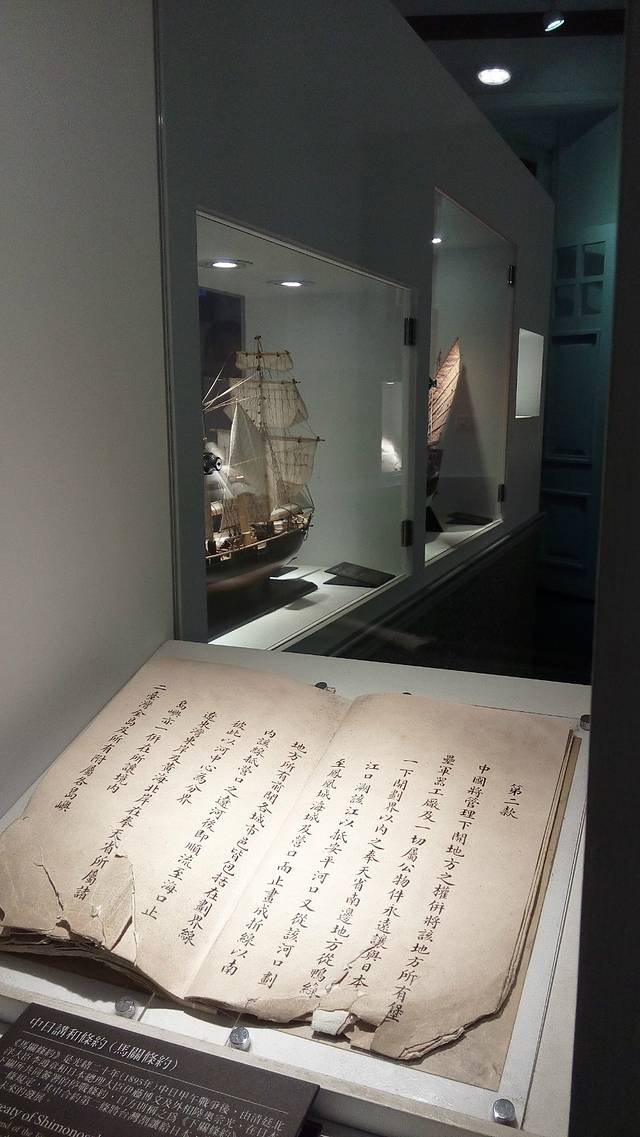 第二款
中國將管理下開地方之權併將該地方所有堡
壘軍器工廠及一切屬公物件永遠讓與日本
一下開劃界以內之奉天省南邊地方從鴨綠
江口溯該江以抵安平河口又從該河口劃
至鳳凰城海城及營口而止畫成折線以南
地方所有前開各城市邑皆包括在劃界線
內該線抵營口之遼河後即順流至海口止
彼此以河中心為分界
遼東灣東岸及黃海北岸在奉天省所屬諸
島嶼亦一併在所讓境內
二臺灣全島及所有附屬各島嶼
中日講和條約（馬關條約）
《馬關條約》是光緒二十一年（1895年）中日甲午戰爭後，由清廷北